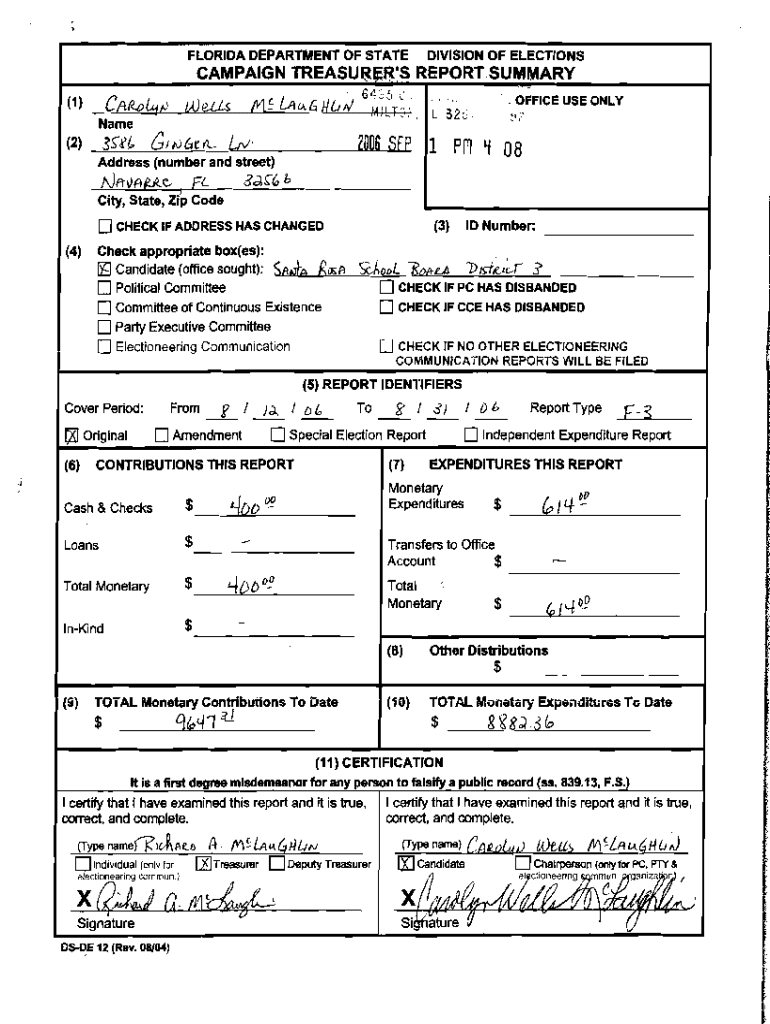 FLORIDA DEPARTMENT OF STATE DIVISION OF ELECTIONS
CAMPAIGN TREASURER'S REPORT SUMMARY
(1) CAROLYN WELLS McLAUGHLIN
Name
OFFICE USE ONLY
(2) 3586 GINGER LN.
2006 SEP 1 PM 4 08
Address (number and street)
NAVARRE, FL 32566
City, State, Zip Code
CHECK IF ADDRESS HAS CHANGED (3) ID Number:
(4) Check appropriate box(es):
X Candidate (office sought): SANTA ROSA SCHOOL BOARD DISTRICT 3
Political Committee CHECK IF PC HAS DISBANDED
Committee of Continuous Existence CHECK IF CCE HAS DISBANDED
Party Executive Committee
Electioneering Communication CHECK IF NO OTHER ELECTIONEERING
COMMUNICATION REPORTS WILL BE FILED
(5) REPORT IDENTIFIERS
Cover Period: From 8 / 12 / 06 To 8 / 31 / 06 Report Type F-3
X Original Amendment Special Election Report Independent Expenditure Report
(6) CONTRIBUTIONS THIS REPORT
Cash & Checks $ 400 00
Loans $ -
Total Monetary $ 400 00
In-Kind $ -
(7) EXPENDITURES THIS REPORT
Monetary
Expenditures $ 614 00
Transfers to Office
Account $ -
Total
Monetary $ 614 00
(8) Other Distributions
$
(9) TOTAL Monetary Contributions To Date
$ 9647 31
(10) TOTAL Monetary Expenditures To Date
$ 8882.36
(11) CERTIFICATION
It is a first degree misdemeanor for any person to falsify a public record (ss. 839.13, F.S.)
I certify that I have examined this report and it is true,
correct, and complete.
(Type name) RICHARD A. McLAUGHLIN
Individual (only for X Treasurer Deputy Treasurer
electioneering commun.)
X Richard A. McLaughlin
Signature
I certify that I have examined this report and it is true,
correct, and complete.
(Type name) CAROLYN WELLS McLAUGHLIN
X Candidate Chairperson (only for PC, PTY &
electioneering commun organization)
X Carolyn Wells McLaughlin
Signature
DS-DE 12 (Rev. 08/04)